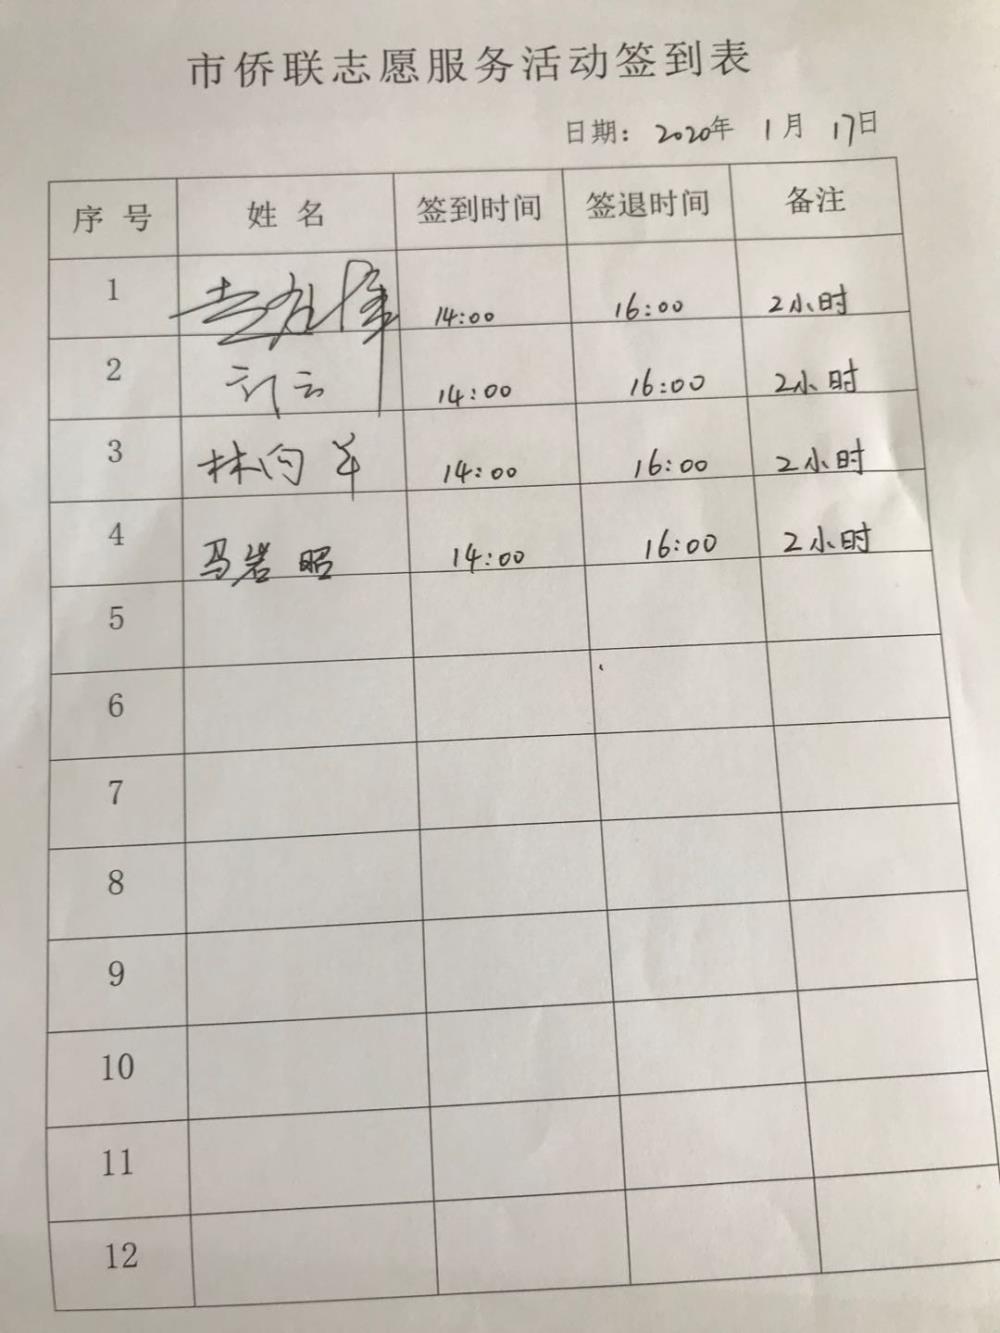 市侨联志愿服务活动签到表
日期： 2020年 1月 17日
序号 姓名 签到时间 签退时间 备注
1 14:00 16:00 2小时
2 14:00 16:00 2小时
3 林向羊 14:00 16:00 2小时
4 马岩昭 14:00 16:00 2小时
5
6
7
8
9
10
11
12